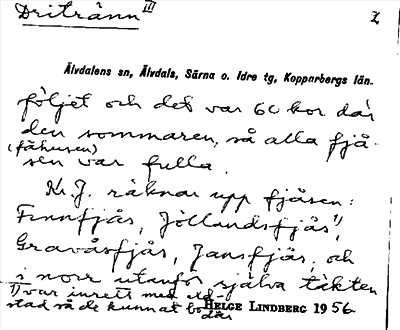 Dritränn III
2
Älvdalens sn, Älvdals, Särna o. Idre tg, Kopparbergs län.
följet och det var 60 kor där
den sommaren, så alla fjå-
(fähusen)
sen var fulla.
Kr. J. räknar upp fjåsen:
Finnfjås, Jöllandsfjås 1),
Gravåsfjås, Jansfjås, och
i norr utanför själva täkten
1) var inrett med eld-
stad så de kunnat bo där
HELGE LINDBERG 1956